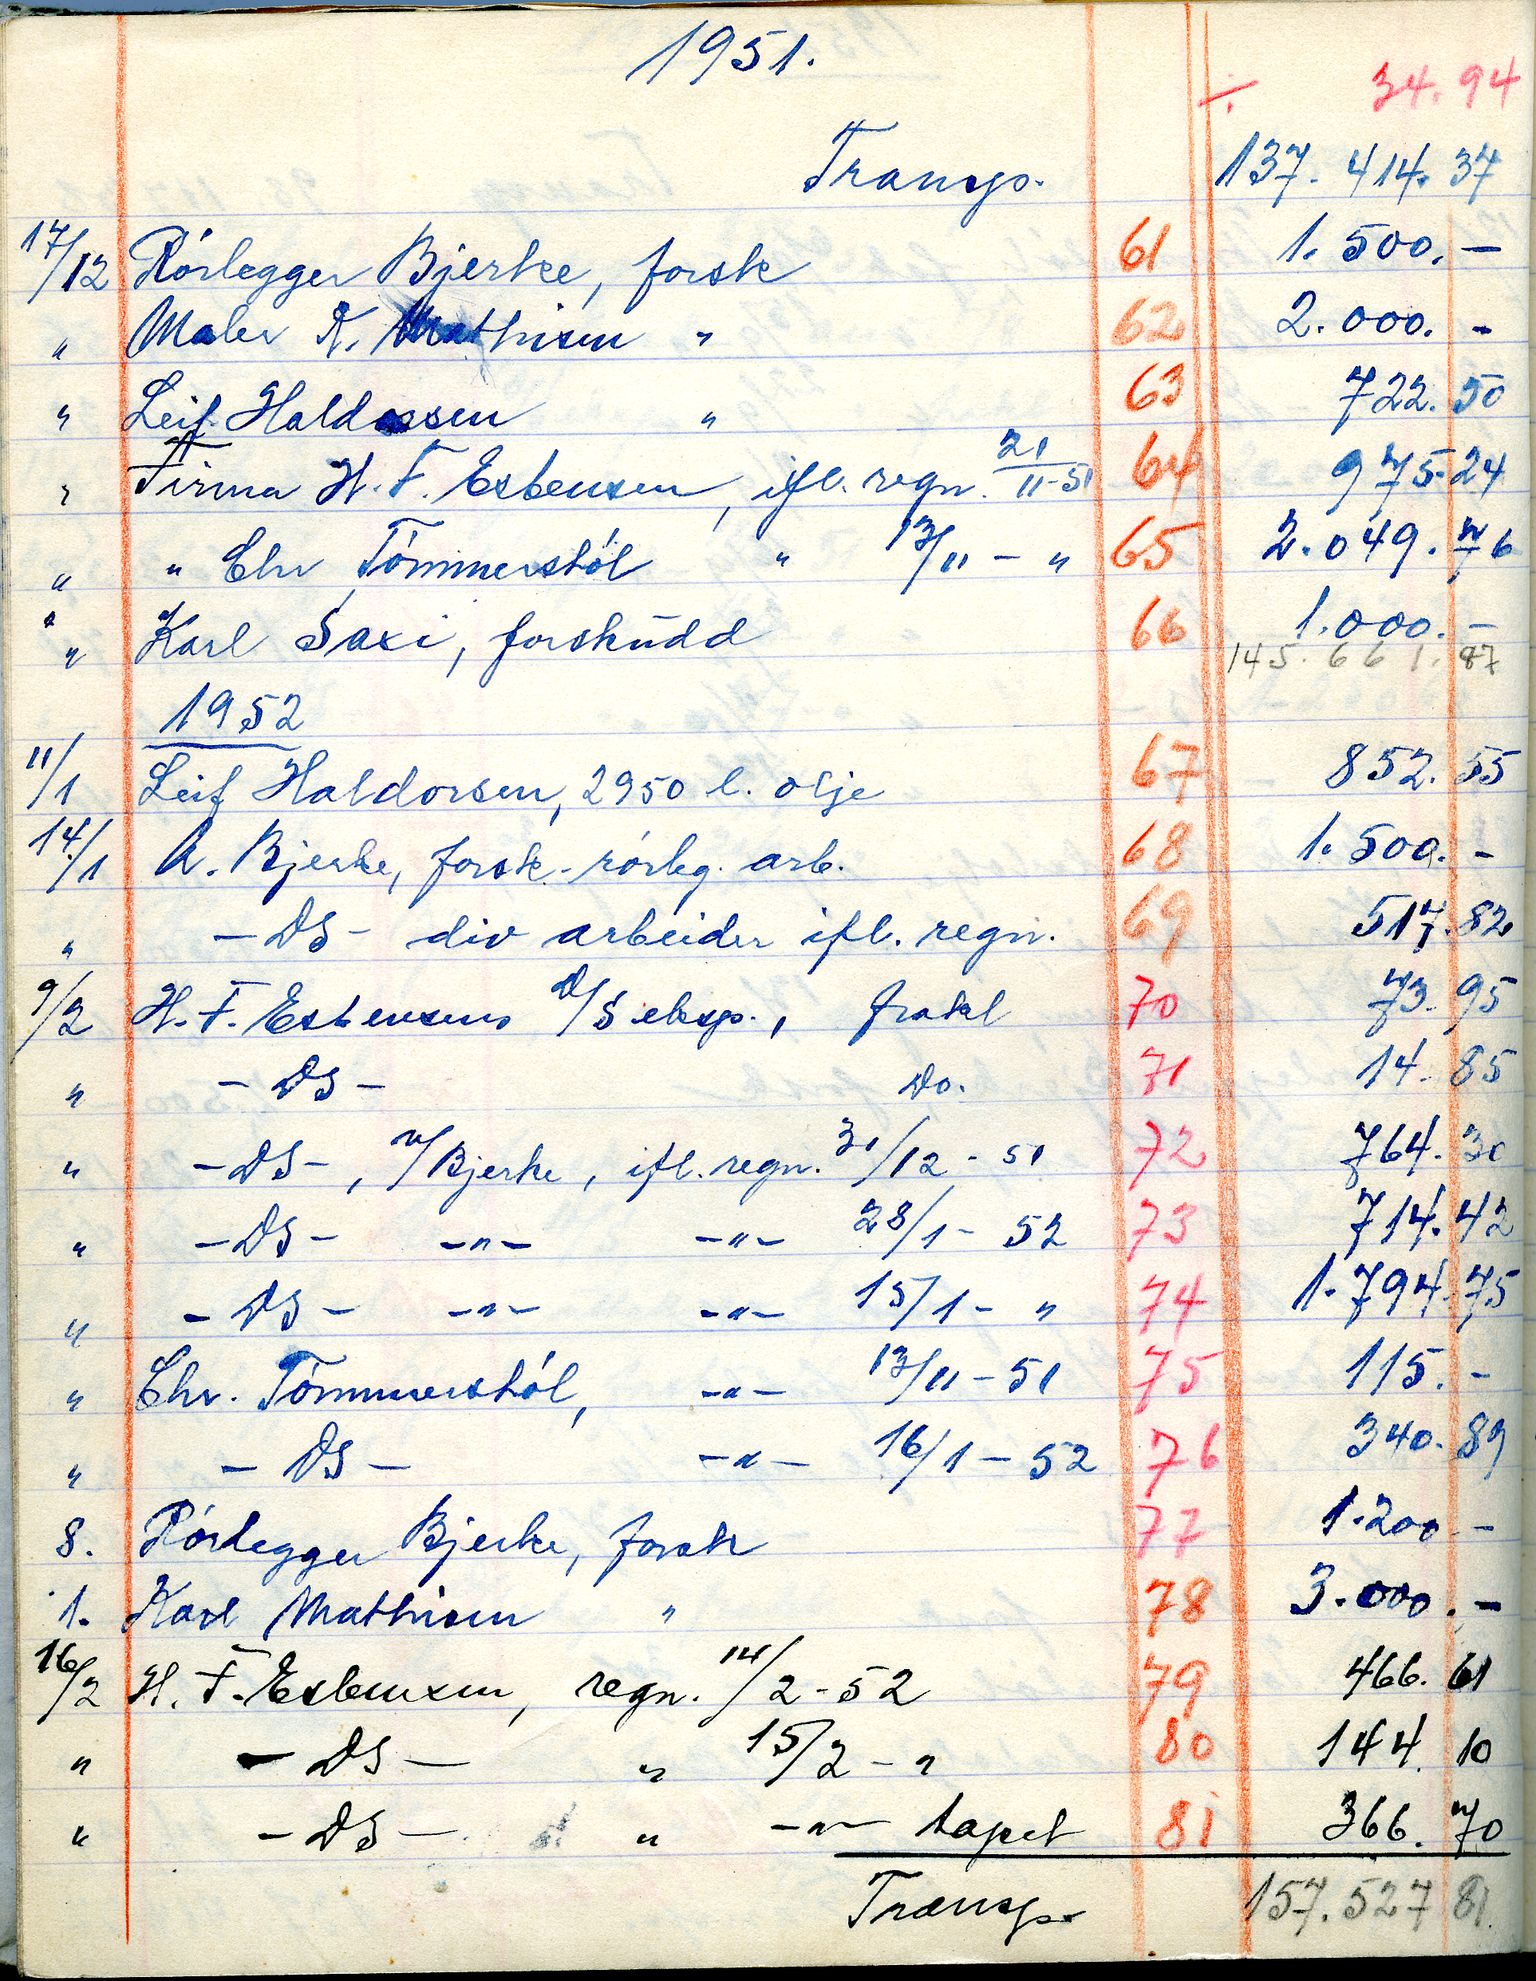 1951.
÷ 34.94
Transp. 137.414.37
17/12 Rórlegger Bjerke, forsk 61 1.500.—
" Maler K. Mathisen " 62 2.000.-
" Leif Haldossen " 63 722.50
" Firma H. F. Esbensen, ifl. regn. 21/11-51 64 975.24
" " Chr Tómmerstól " 13/11 - " 65 2.049.76
" Karl Saxi, forskudd 66 1.000.-
145.661.87
1952
11/1 Leif Haldorsen, 2950 l. olje 67 852.55
14/1 A. Bjerke, forsk. rórleg. arb. 68 1.500.-
" - DS - div arbeider ifl. regn. 69 517.82
9/2 H. F. Esbensens D/S eksp., frakt 70 73.95
" - DS - Do. 71 14.85
" - DS -, v/Bjerke, ifl. regn. 31/12 - 51 72 764.30
" - DS - -"- -"- 28/1 - 52 73 714.42
" - DS - -"- -"- 15/1 - " 74 1.794.75
" Chr. Tómmerstól, -"- 13/11 - 51 75 115.-
" - DS - -"- 16/1 - 52 76 340.89
8. Rórlegger Bjerke, forsk 77 1.200-
1. Karl Mathisen " 78 3.000.-
16/2 H. F. Esbensen, regn. 14/2 - 52 79 466.61
" - DS - " 15/2 - " 80 144.10
" - DS - " -"- tapet 81 366.70
Transp. 157.527 81